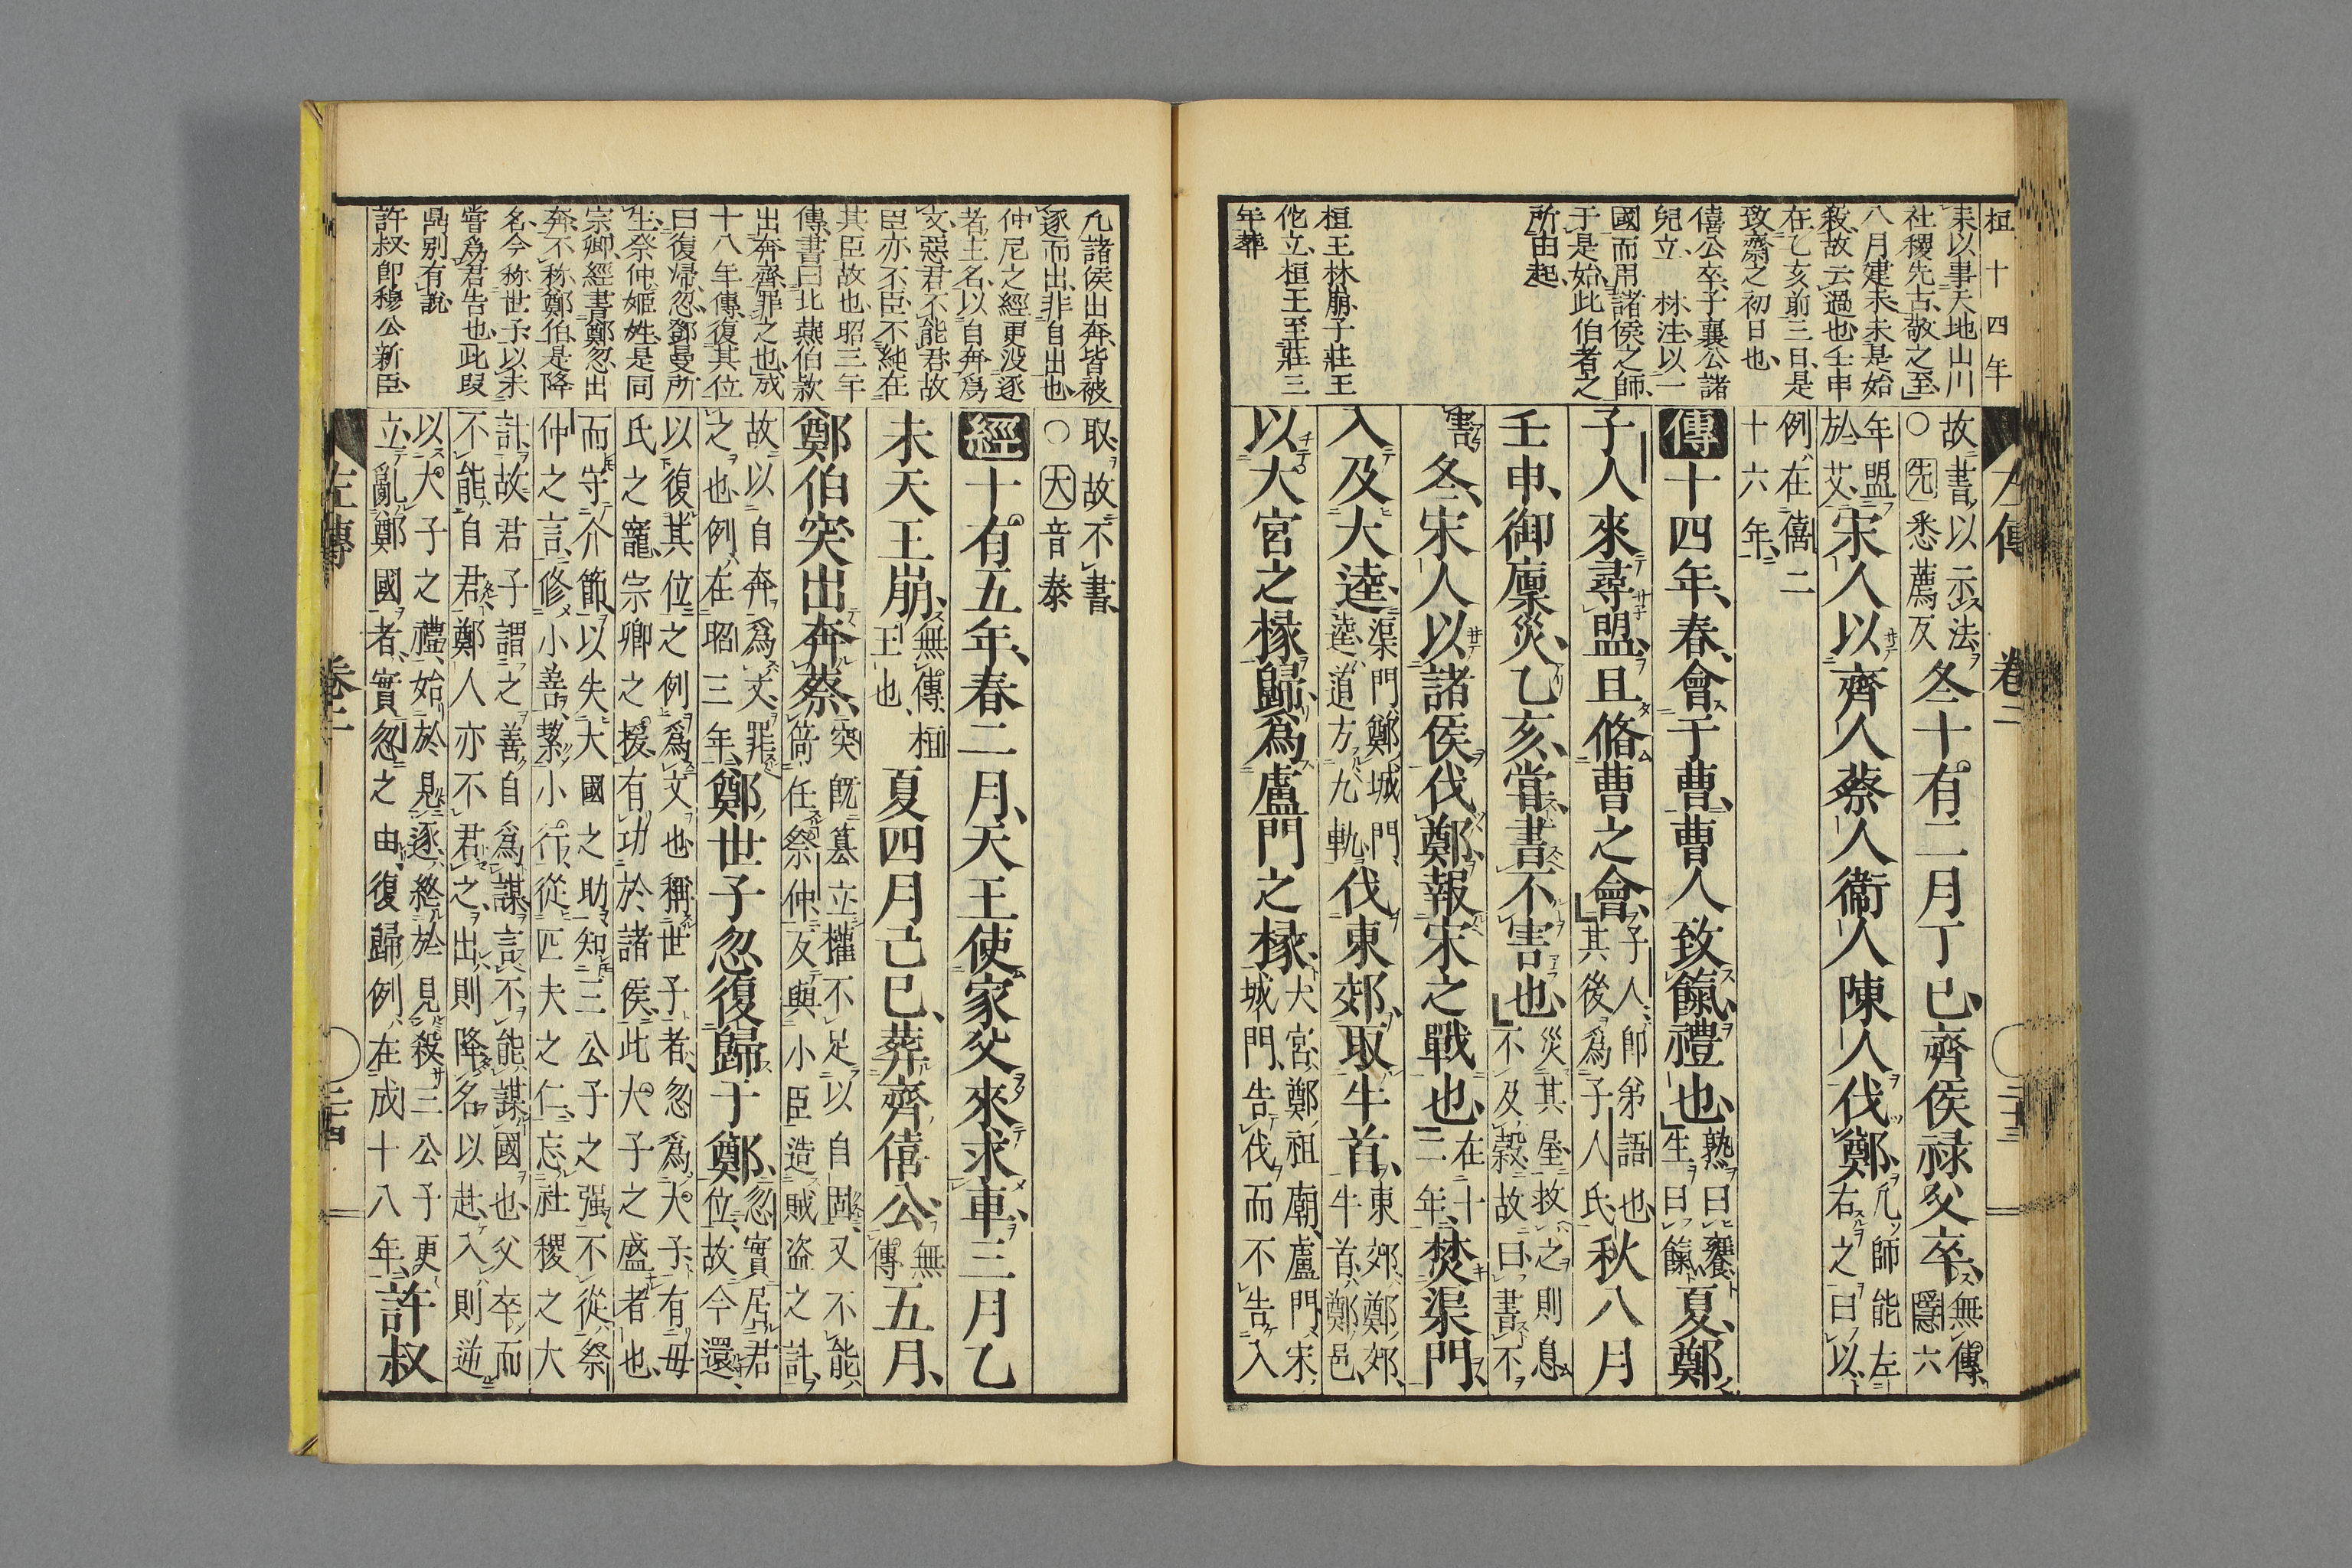 桓十四年
耒以事天地山川
社稷先古、敬之至
八月建未未是始
殺、故云過也、壬申
在乙亥前三日、是
致齋之初日也、
僖公卒、子襄公諸
兒立、 林注、以一
國而用諸侯之師、
于是始、此伯者之
所由起、
桓王林崩、子莊王
佗立、桓王至莊三
年葬
左傳 卷二
故書以示法
○先悉薦反冬十有二月丁巳、齊侯禄父卒、無傳、隱六
年盟於艾宋人以齊人蔡人衞人陳人伐鄭、凡師能左右之曰以
例在僖二十六年、
傳十四年、春、會于曹、曹人致餼、禮也、熟曰饔生曰餼夏、鄭
子人來尋盟、且脩曹之會、子人、即弟語也其後爲子人氏秋八月
壬申、御廩災、乙亥、嘗、書不害也、災其屋救之則息不及穀、故曰書不
害、冬、宋人以諸侯伐鄭、報宋之戰也、在十二年、焚渠門、
入及大逵、渠門、鄭城門、逵、道方九軌伐東郊、取牛首、東郊、鄭郊、牛首、鄭邑、
以大宮之椽歸、爲盧門之椽、大宮、鄭祖廟、盧門、宋城門、告伐而不告入
凡諸侯出奔、皆被
逐而出、非自出也、
仲尼之經、更没逐
者、主名、以自奔爲
文、惡君不能君、故
臣亦不臣、不純在
其臣故也、昭三年
傳、書曰北燕伯款
出奔齊、罪之也、成
十八年傳、復其位
曰復歸、忽、鄧曼所
生、祭仲、姬姓、是同
宗卿、經書鄭忽出
奔、不称鄭伯、是降
名、今称世子、以未
嘗爲君告也、此叚
鼎別有説
許叔即穆公新臣、
取、故不書、
○大音泰
經十有五年、春二月、天王使家父來求車、三月乙
未天王崩、無傳、桓王也、夏四月己巳、葬齊僖公、無傳五月、
鄭伯突出奔蔡、突既簒立、權不足以自固、又不能倚任祭仲、反與小臣造賊盗之計、
故以自奔爲文、罪之也、例在昭三年、鄭世子忽復歸于鄭、忽實居君位、故今還
以復其位之例爲文也、稱世子者、忽爲大子、有母
氏之寵、宗卿之援、有功於諸侯、此大子之盛者也、
而守介節、以失大國之助、知三公子之强、不從祭
仲之言、修小善、絜小行、從匹夫之仁、忘社稷之大
計、故君子謂之善自爲謀、言不能謀國也、父卒而
不能自君、鄭人亦不君之、出則降名以赴、入則逆
以大子之禮、始於見逐、終於見殺、三公子更
立、亂鄭國者、實忽之由、復歸例在成十八年、許叔
左傳 卷二